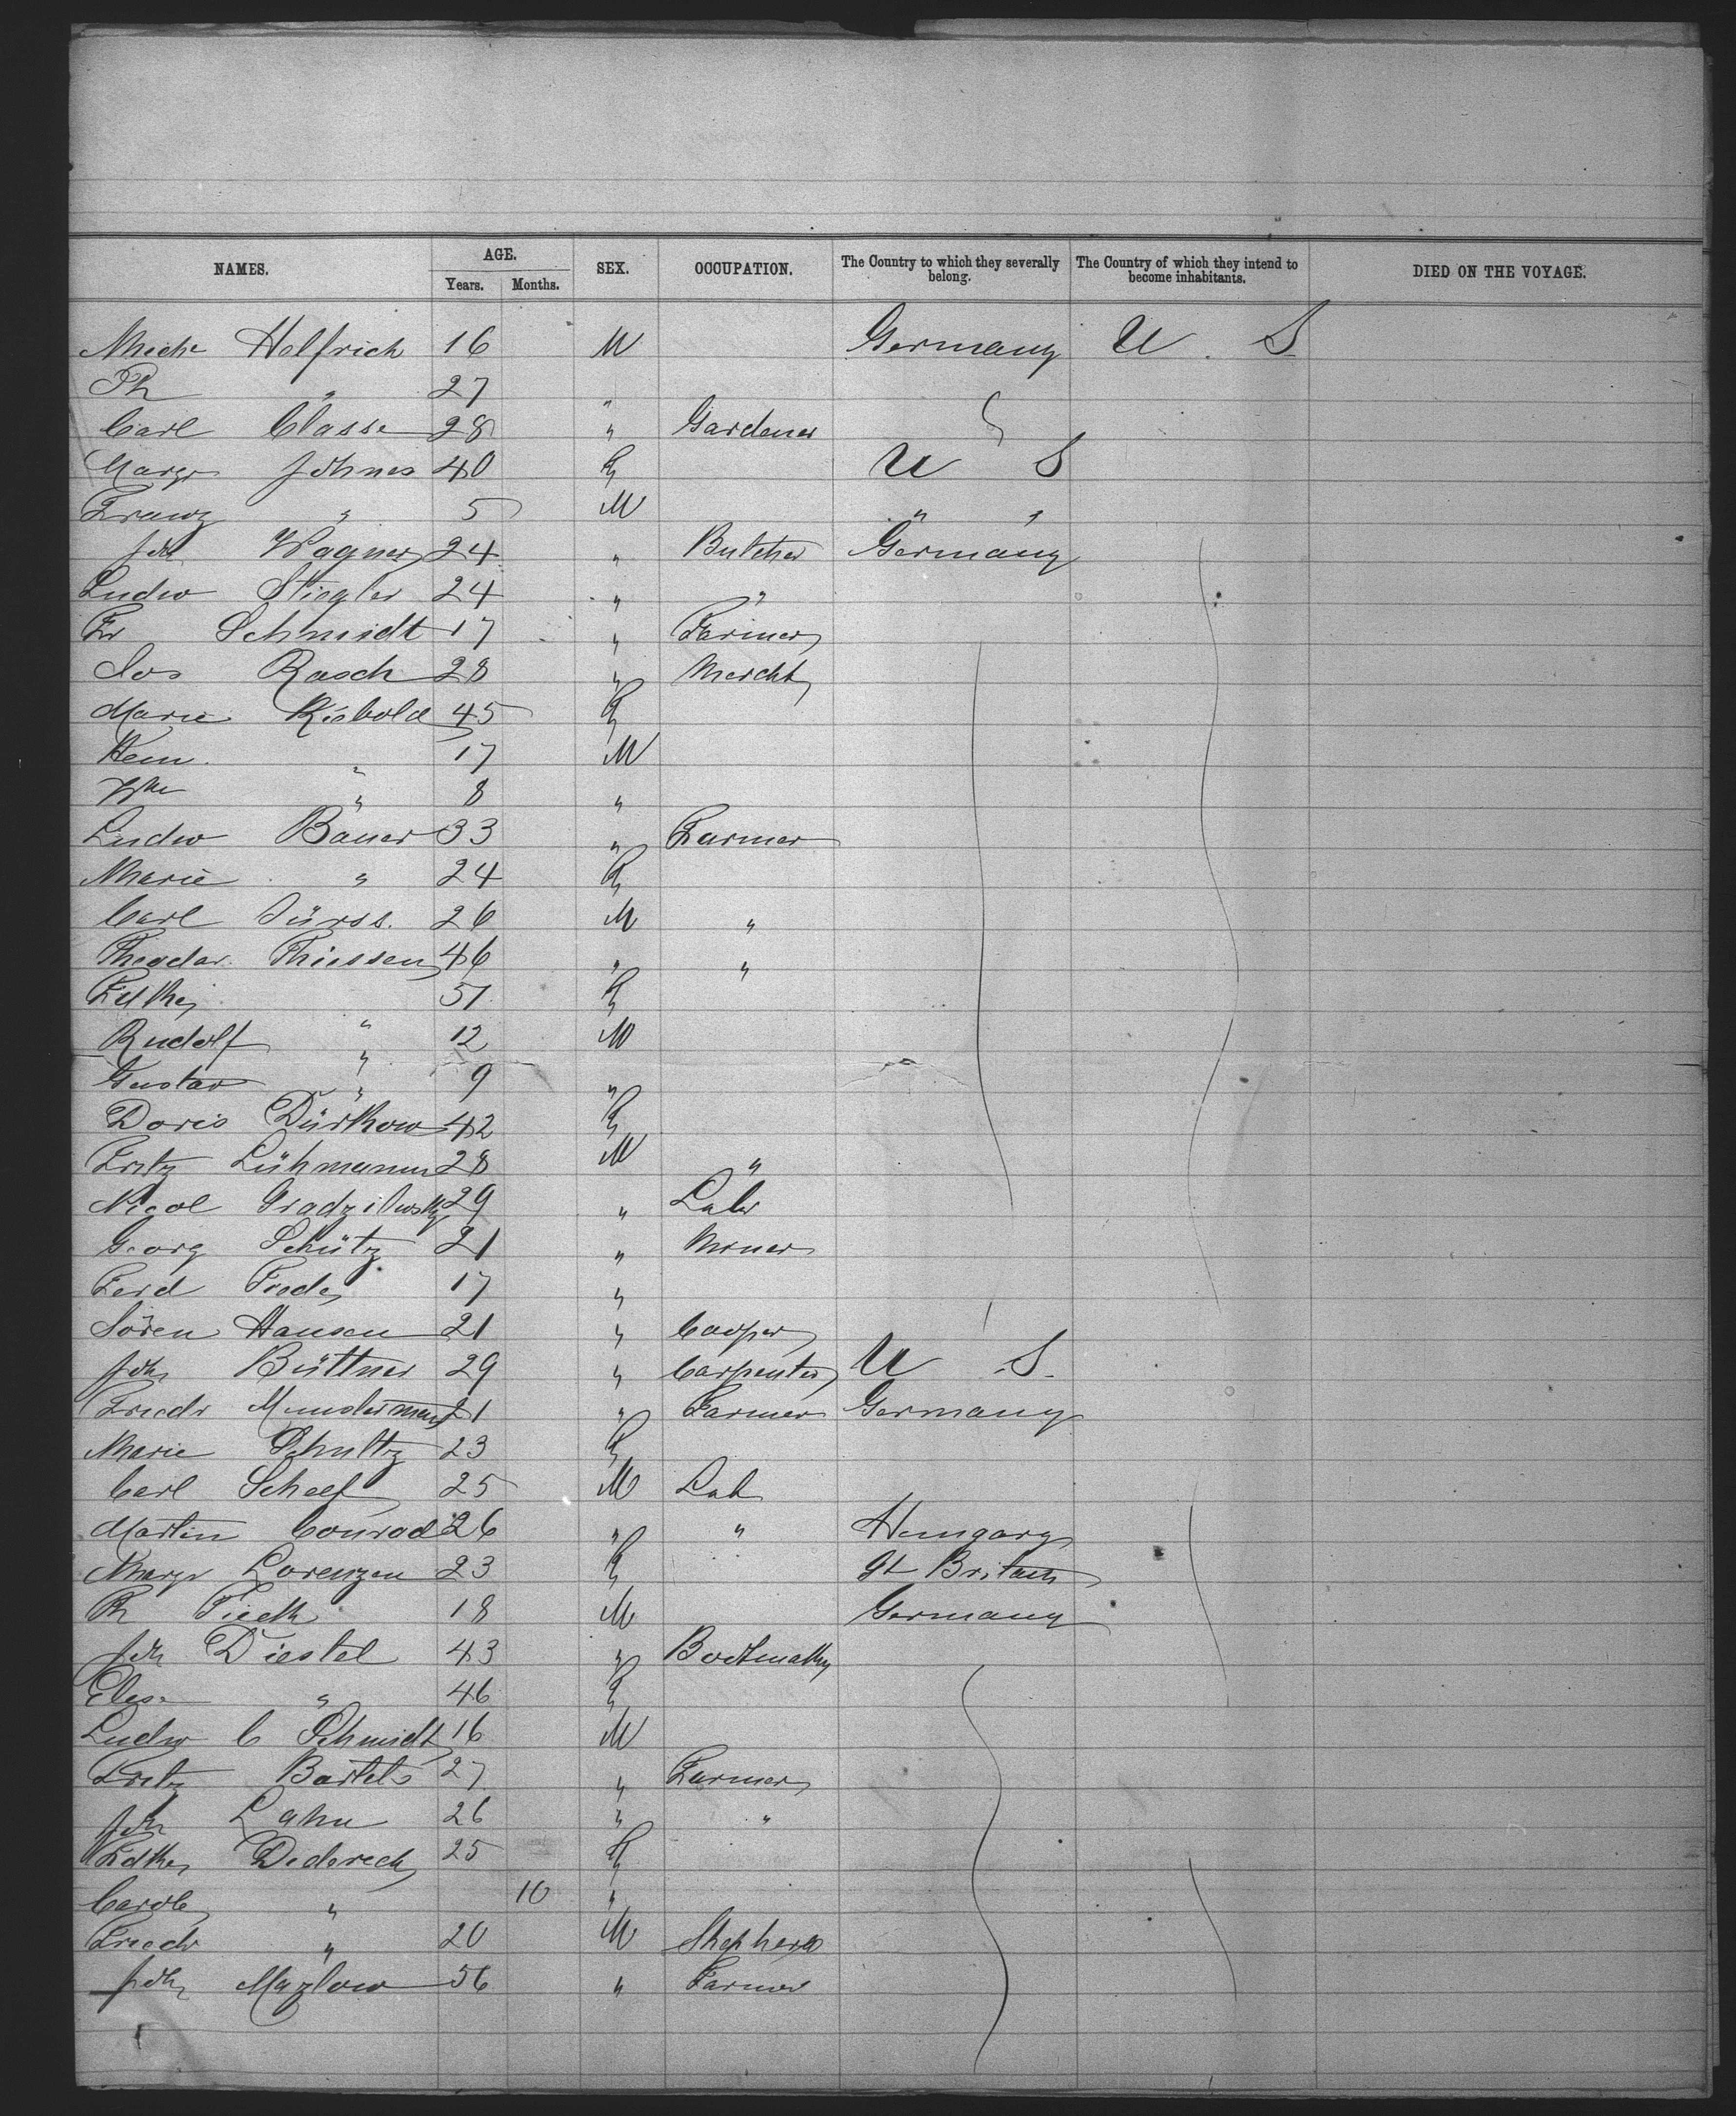 NAMES. AGE. SEX. OCCUPATION. The Country to which they severally belong. The Country of which they intend to become inhabitants. DIED ON THE VOYAGE.
Years. Months.
Helfrich 16 M Germany U. S.
Ph " 27 "
Carl Classe 28 " Gardener
Margr Johnes 40 F U S
Franz " 5 M " "
Joh Wagner 24 " Butcher Germany
Ludw Stiegler 24 " "
Fr Schmidt 17 " Farmer
Jos Rasch 28 " Mercht
Marie Riebold 45 F
Hein. " 17 M
Wm " 8 "
Ludw Bauer 33 " Farmer
Marie " 24 F
Carl Jürss. 26 M "
Theodor Thiessen 46 " "
51 F
Rudolf " 12 M
Gustav " 9 "
Doris Dürkow 42 F
Fritz Lühmann 28 M "
Nicol 29 " Labr
Georg Schütz 21 " Miner
Ferd Frede 17 "
Sören Hansen 21 " Cooper
Joh Büttner 29 " Carpenter U S.
Friedr Munstermann 21 " Farmer Germany
Marie Schultz 23 F
Carl Scheef 25 M Lab
Martin Conrad 26 " " Hungary
Margr Lorenzen 23 F Gt Britain
Ph Tieck 18 M Germany
Joh Diestel 43 " Bootmaker
Elise " 46 F
Ludw C Schmidt 16 M
Fritz Bartels 27 " Farmer
Joh Lahn 26 " "
Dederich 25 F
Carole " 10 "
Friedr " 20 M Shepherd
Joh Mazlow 56 " Farmer